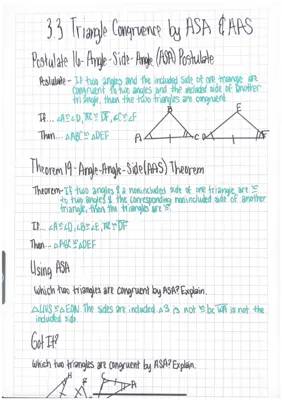 3.3 Triangle Congruence by ASA & AAS
Postulate 16 - Angle-Side-Angle (ASA) Postulate
Postulate - If two angles and the included side of one triangle are
congruent to two angles and the included side of another
triangle, then the two triangles are congruent.
If... ∠A≅∠D, AC≅DF, ∠C≅∠F
Then... △ABC≅△DEF
B
E
A
C
D
F
Theorem 19 - Angle-Angle-Side (AAS) Theorem
Theorem - If two angles & a nonincluded side of one triangle, are ≅
to two angles & the corresponding nonincluded side of another
triangle, then the triangles are ≅.
If... ∠A≅∠D, ∠B≅∠E, AC≅DF
Then... △ABC≅△DEF
Using ASA
Which two triangles are congruent by ASA? Explain.
The sides are included
is not the
included side.
Got It?
Which two triangles are congruent by ASA? Explain.